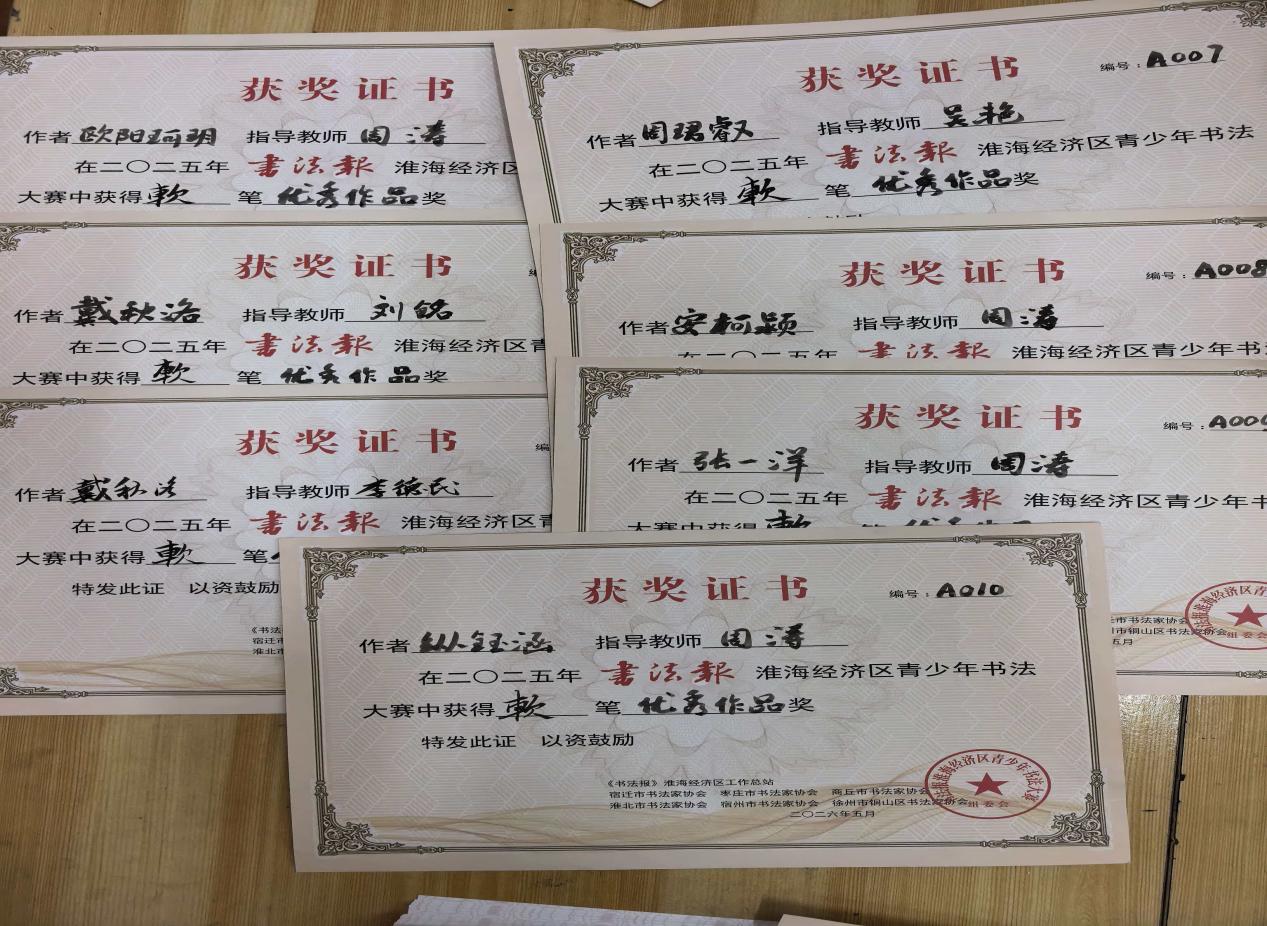 获奖证书
作者 欧阳珂玥 指导教师 周涛
在二〇二五年 書法報 淮海经济区
大赛中获得 軟 笔 优秀作品奖
获奖证书
作者 戴秋洛 指导教师 刘铭
在二〇二五年 書法報 淮海经济区青
大赛中获得 軟 笔 优秀作品奖
获奖证书
编
作者 戴秋洛 指导教师 李德民
在二〇二五年 書法報 淮海经济区青
大赛中获得 軟 笔
特发此证 以资鼓励
《书法
宿迁市
淮北市
获奖证书
编号：A007
作者 周珺睿 指导教师 吴艳
在二〇二五年 書法報 淮海经济区青少年书法
大赛中获得 軟 笔 优秀作品奖
获奖证书
编号：A008
作者 安柯颖 指导教师 周涛
在二〇二五年 書法報 淮海经济区青少年书法
获奖证书
编号：A009
作者 张一洋 指导教师 周涛
在二〇二五年 書法報 淮海经济区青少年书
大赛中获得 軟 笔 优秀作品
市书法家协会
州市铜山区书法家协会
五月
组委会
获奖证书
编号：A010
作者 纵钰涵 指导教师 周涛
在二〇二五年 書法報 淮海经济区青少年书法
大赛中获得 軟 笔 优秀作品奖
特发此证 以资鼓励
《书法报》淮海经济区工作总站
宿迁市书法家协会 枣庄市书法家协会 商丘市书法家协会
淮北市书法家协会 宿州市书法家协会 徐州市铜山区书法家协会
二〇二六年五月
书法报淮海经济区青少年书法大赛
组委会